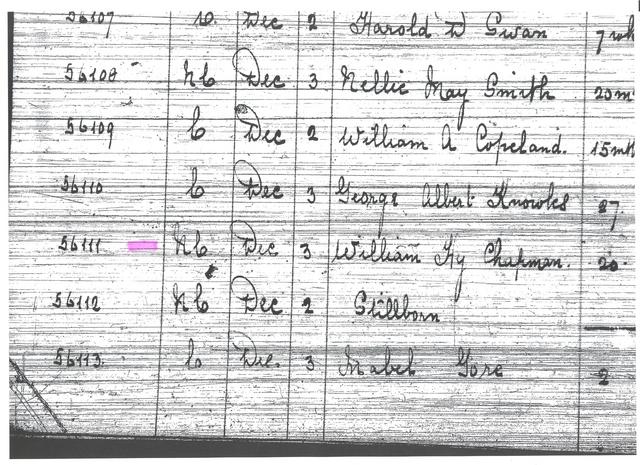 56107 C Dec 2 Harold D Swan 7 wk
56108 NC Dec 3 Nellie May Smith 20m
56109 C Dec 2 William A Copeland. 15mth
56110 C Dec 3 George Albert Knowles 27
56111 NC Dec 3 William Hy Chapman. 20
56112 NC Dec 2 Stillborn
56113 C Dec 3 Mabel Gore 2